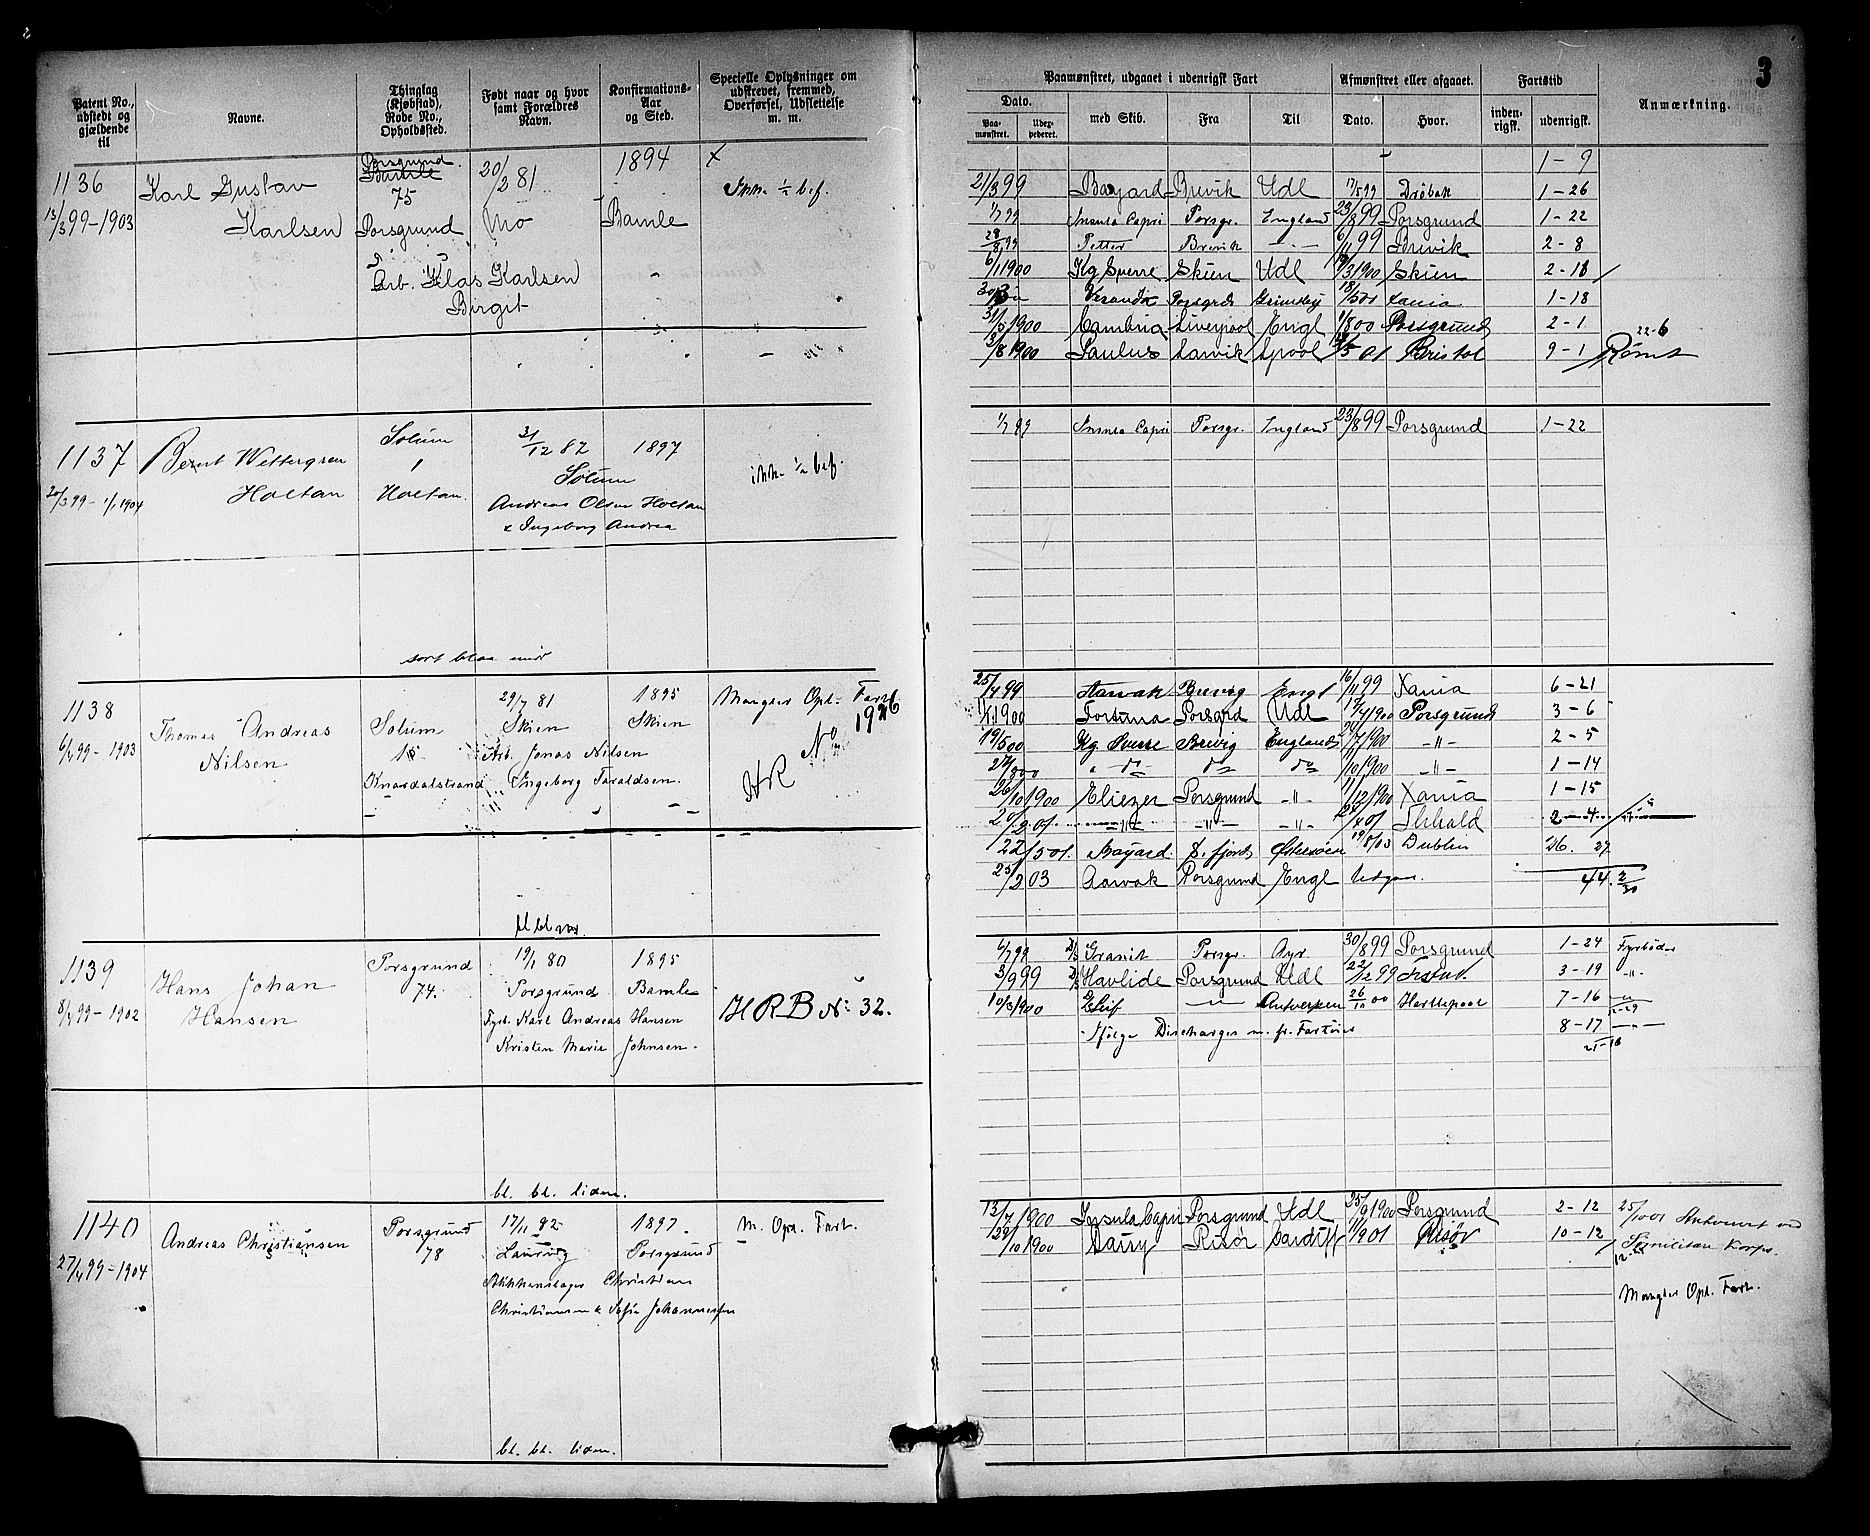 3
Patent No., udstedt og gjældende til
Navne.
Thinglag (Kjøbstad), Rode No., Opholdssted.
Født naar og hvor samt Forældres Navn.
Konfirmations-Aar og Sted.
Specielle Oplysninger om udskrevet, fremmed, Overførsel, Udslettelse m. m.
Paamønstret, udgaaet i udenrigsk Fart
Dato.
Paamønstret.
med Skib.
Fra
Til
Afmønstret eller afgaaet.
Dato.
Hvor.
Fartstid
inden-rigsk.
udenrigsk.
Anmærkning.
1136
13/3 99-1903
Karl Gustav
Karlsen
Porsgrund
Bamle
75
Porsgrund
20/2 81
Mo
Arb. Klas Karlsen
Birgit
1894
Bamle
x
Ikke 1/2 bef.
1-9
21/3 99 Bayard Brevik Udl 17/5 99 Drøbak 1-26
1/7 99 Insula Capri Porsgr. England 23/8 99 Porsgrund 1-22
28/8 99 Petter Brevik -"- 6/11 99 Brevik 2-8
6/1 1900 Kg Sverre Skien Udl /3 1900 Skien 2-18
Grimsby 1-18
31/5 1900 Cambria Liverpool Engl 1/8 00 Porsgrund 2-1
3/8 1900 Paulus Larvik Lpool /5 01 Bristol 9-1 Rømt
22-6
1137
20/3 99 - 1/1 1904
Bernt Wettergren
Holtan
Solum
1
Holtan
31/12 82
Solum
Andreas Olsen Holtan
& Ingeborg Andrea
1897
ikke 1/2 bef.
1/7 99 Insula Capri Porsgr. England 23/8 99 Porsgrund 1-22
sort blaa mid
1138
6/4 99-1903
Thomas Andreas
Nilsen
Solum
15
Knardalstrand
29/7 81
Skien
Arb. Jonas Nilsen
Engeborg Taraldsen.
1895
Skien
Mangler Opl. Fart
HR No 1926
25/4 99 Aarvak Brevig Engl 16/11 99 Xania 6-21
1/1 1900 Fortuna Porsgrd Udl 17/4 1900 Porsgrund 3-6
19/5 00 Kg Sverre Brevig England /7 1900 -"- 2-5
" do do do /10 1900 -"- 1-14
26/10 1900 Eliezer Porsgrund -"- 11/12 1900 Xania 1-15
20/2 01 -"- -"- -"- /4 01 Frhald 2-4
22/5 01 Bayard Østersøen 19/8 03 Dublin 26. 27
25/2 03 Aarvak Porsgrund Engl Udgaar. 44. 2/30
bl bl m
1139
8/4 99-1902
Hans Johan
Hansen
Porsgrund
74.
19/1 80
Porsgrund
Fyrb. Karl Andreas Hansen
Kristen Marie Johnsen.
1895
Bamle
HRB No 32.
6/7 99 D/S Granit Porsgr. Ayr 30/8 99 Porsgrund 1-24 Fyrbøder
3/9 99 D/S Havlide Porsgrund Udl 22/12 99 3-19 -"-
10/3 1900 D/S Leif -"- Antwerpen 26/10 00 Hartlepool 7-16 -"-
12-29
Ifølge Discharges m. fr. Fartøier 8-17 -"-
21-16
bl. bl. liden.
1140
27/4 99-1904
Andreas Christiansen
Porsgrund
78
17/11 82
Laurvig
Christian
Christiansen & Sofie Johannessen
1897
Porsgrund
M. Opl. Fart.
13/7 1900 Insula Capri Porsgrund Udl 25/9 1900 Porsgrund 2-12
29/10 1900 Daisy Risør Cardiff 11/9 01 Risør 10-12
25/10 01
Sømilitære Korps.
Mangler Opl. Fart.
bl. bl. liden.